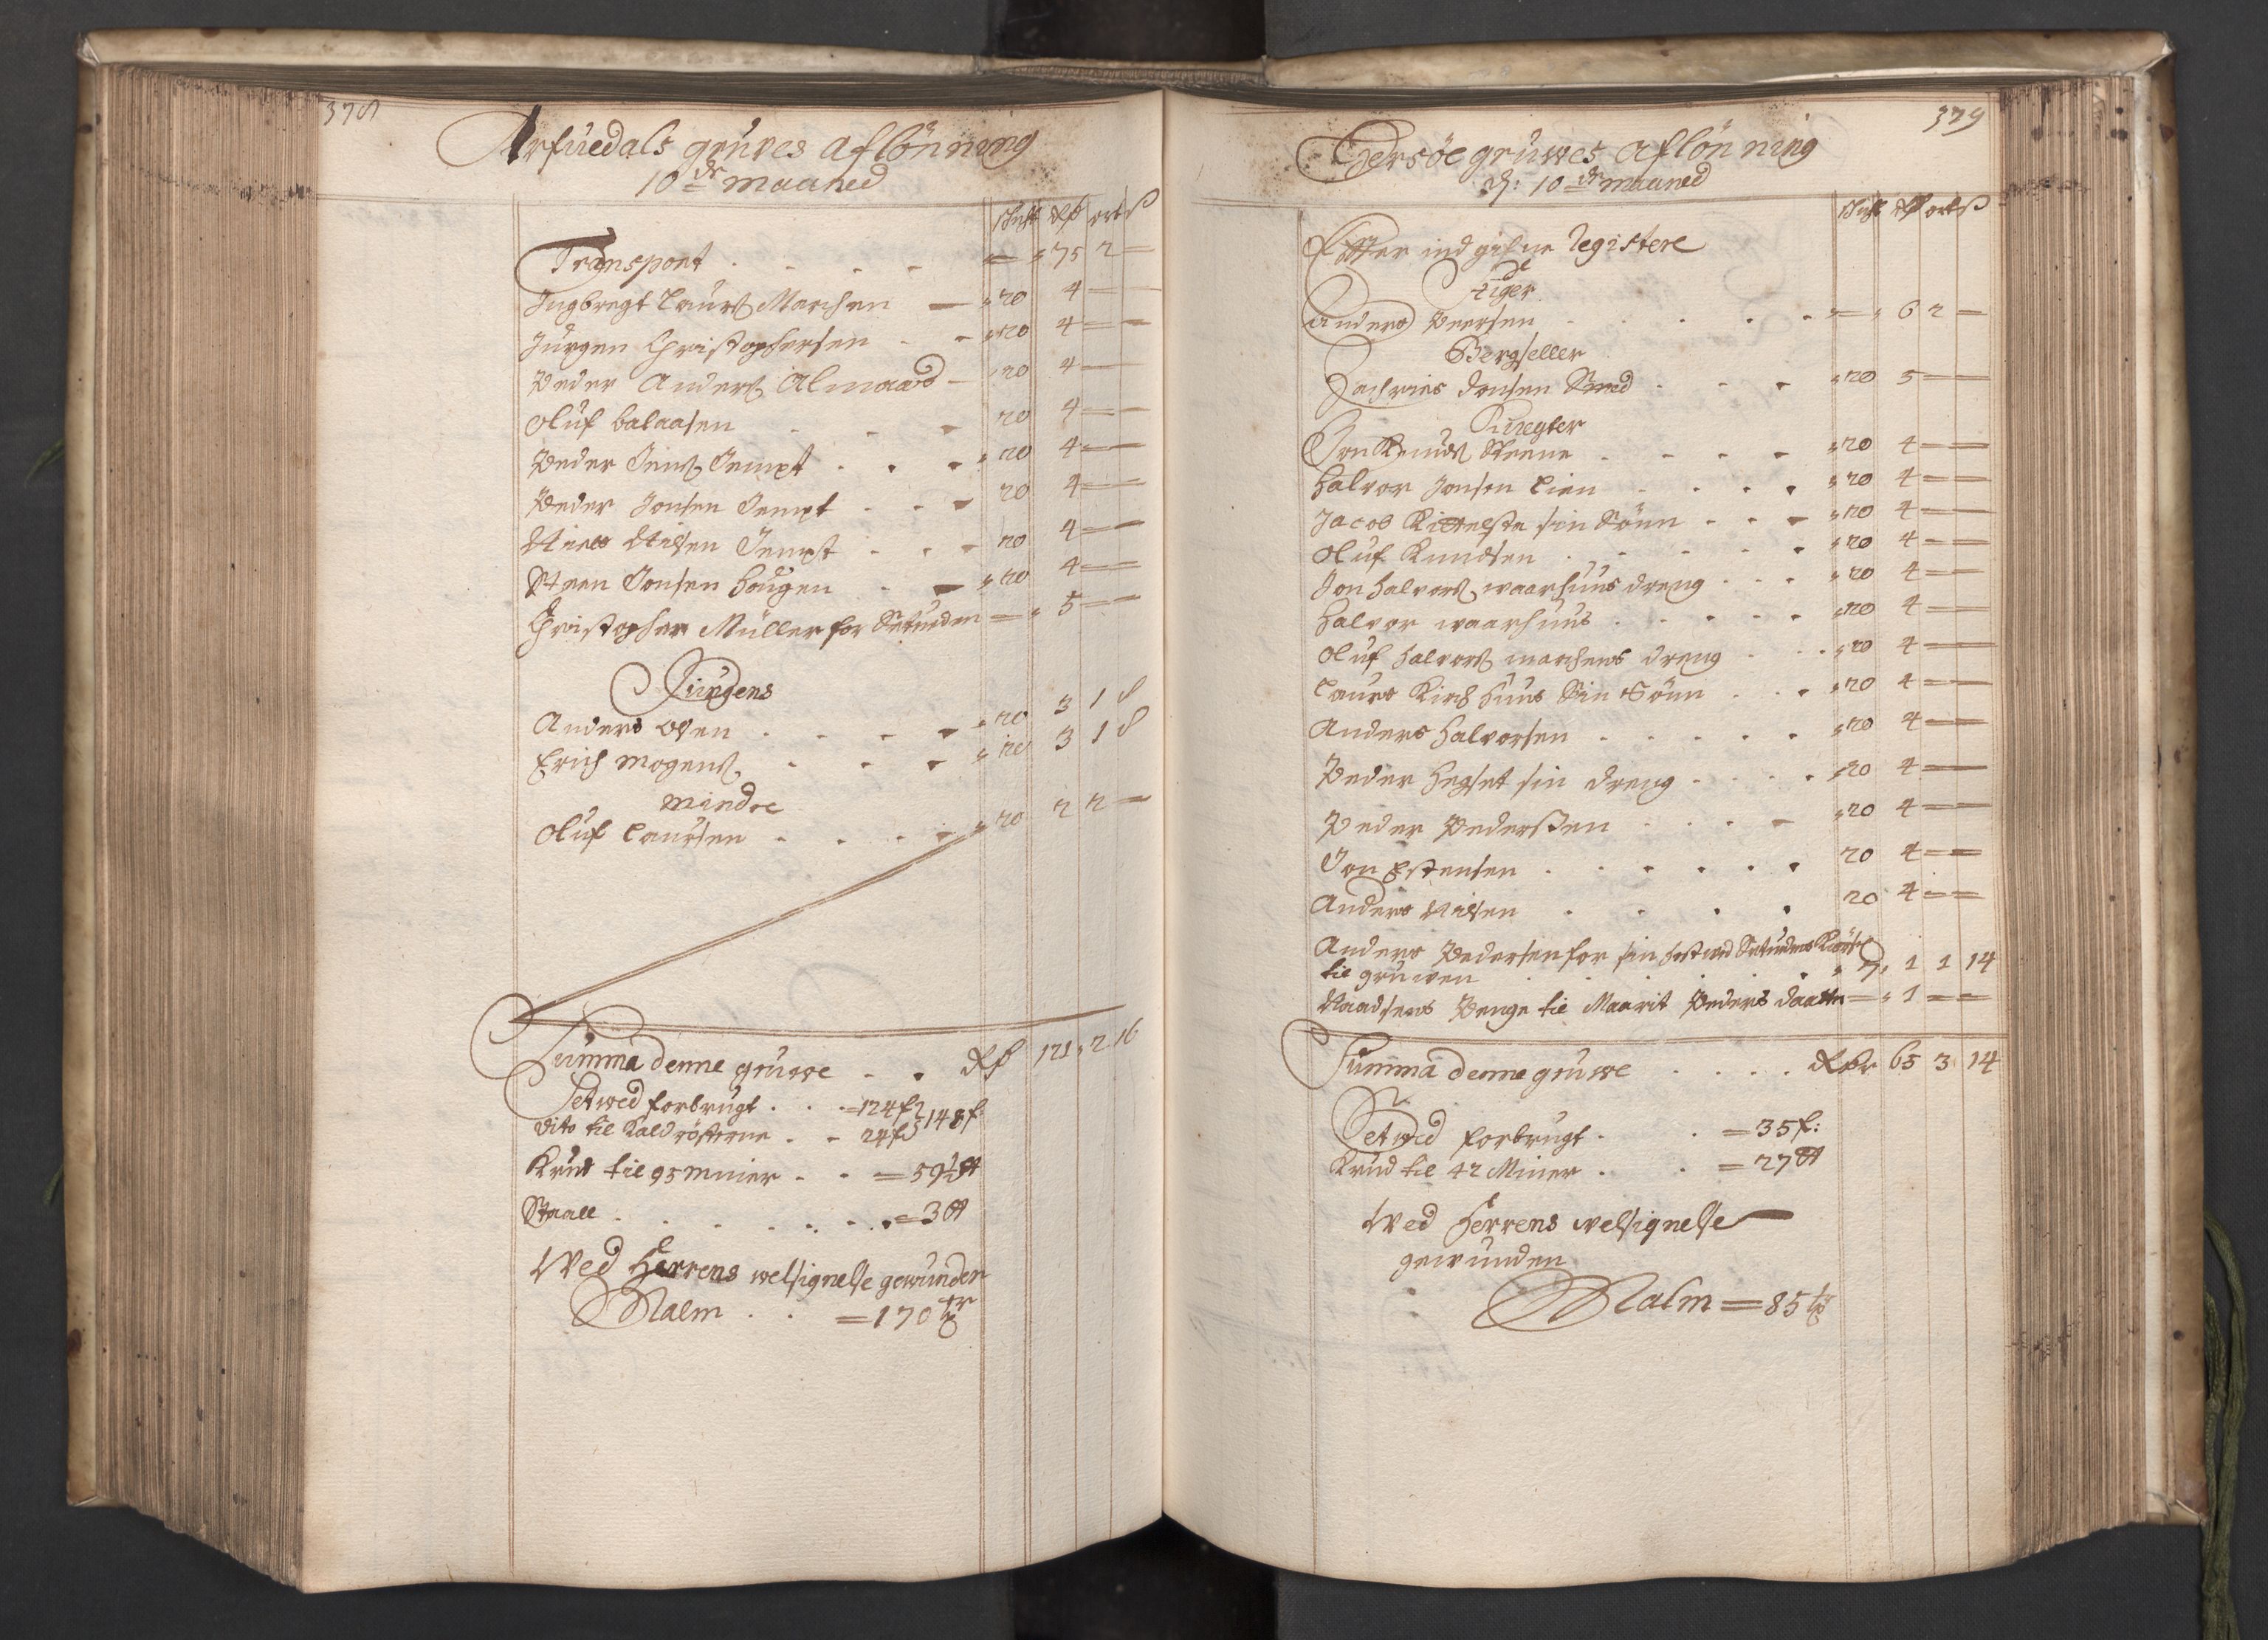 378
Arfuedals gruves aflönning
10de maaned
schicht Rd ort ß
Transport . . . . = 75 2 —
Ingbregt Laurß Marchen — 20 4 — —
Jürgen Christophersen . - 20 4 — —
Peder Anderß Almaas - 20 4 — —
Oluf balaasen . . - 20 4 — —
Peder Jenß Jempt . . . 20 4 — —
Peder Jonsen Jempt . . - 20 4 — —
Niels Nilsen Jempt . . - 20 4 — —
Steen Jonsen Haugen . - 20 4 — —
Christopher Müller for Seturden = 5 — —
Jungens
Anders Oven . . . - 20 3 1 8
Erich Mogenß . . - 20 3 1 8
Mindre
Oluf Laursen . . . . 20 2 2 —
Summa denne gruwe . . Rd 121 2 16
Setwed forbrugt . . . =124 f
dito til Kaldrösterne . - 24 f 148 f:
Krud til 95 minier . . = 59½ ℔
Staall . . . . . . . = 3 ℔
Wed Herrens welsignelse gewunden
Malm . . = 170 tr
379
Hersöe gruwes aflönning
d: 10de maaned
schicht Rd ort ß
Effter indgifne Registere
Stiger
Anders Peersen . . . . . = 6 2 —
Bergseller
Zachries Jonsen Smed . . . 20 5 — —
Knegter
Jon Knudß Steene . . . - 20 4 — —
Halvor Jonsen Lien . . . . 20 4 — —
Jacob Kittelse sin Sönn . . - 20 4 — —
Oluf Knudsen . . . . . 20 4 — —
Jon Halvorß waarhuus dreng . . . 20 4 — —
Halvor waarhuus . . . . . 20 4 — —
Oluf Halvorß marchens dreng . . . 20 4 — —
Laurs Kirchhuus Sin Sönn . . . 20 4 — —
Anders Halvorsen . . . . . 20 4 — —
Peder Hegset sin dreng . . . . 20 4 — —
Peder Pederßen . . . - 20 4 — —
Jon Estensen . . . . . . 20 4 — —
Anders Nilsen . . . . 20 4 — —
Anders Pedersen for sin hest wed Seturdens Kiörsel
til gruwen . . . . . . 7 1 1 14
Naadsens Penge til Maarit Peders daatter = 1 — —
Summa denne gruwe . . . . Rdr 65 3 14
Setwed forbrugt . . = 35 f:
Krud til 42 Minier . . = 27 ℔
Wed Herrens welsignelse
gewunden
Malm = 85 tr